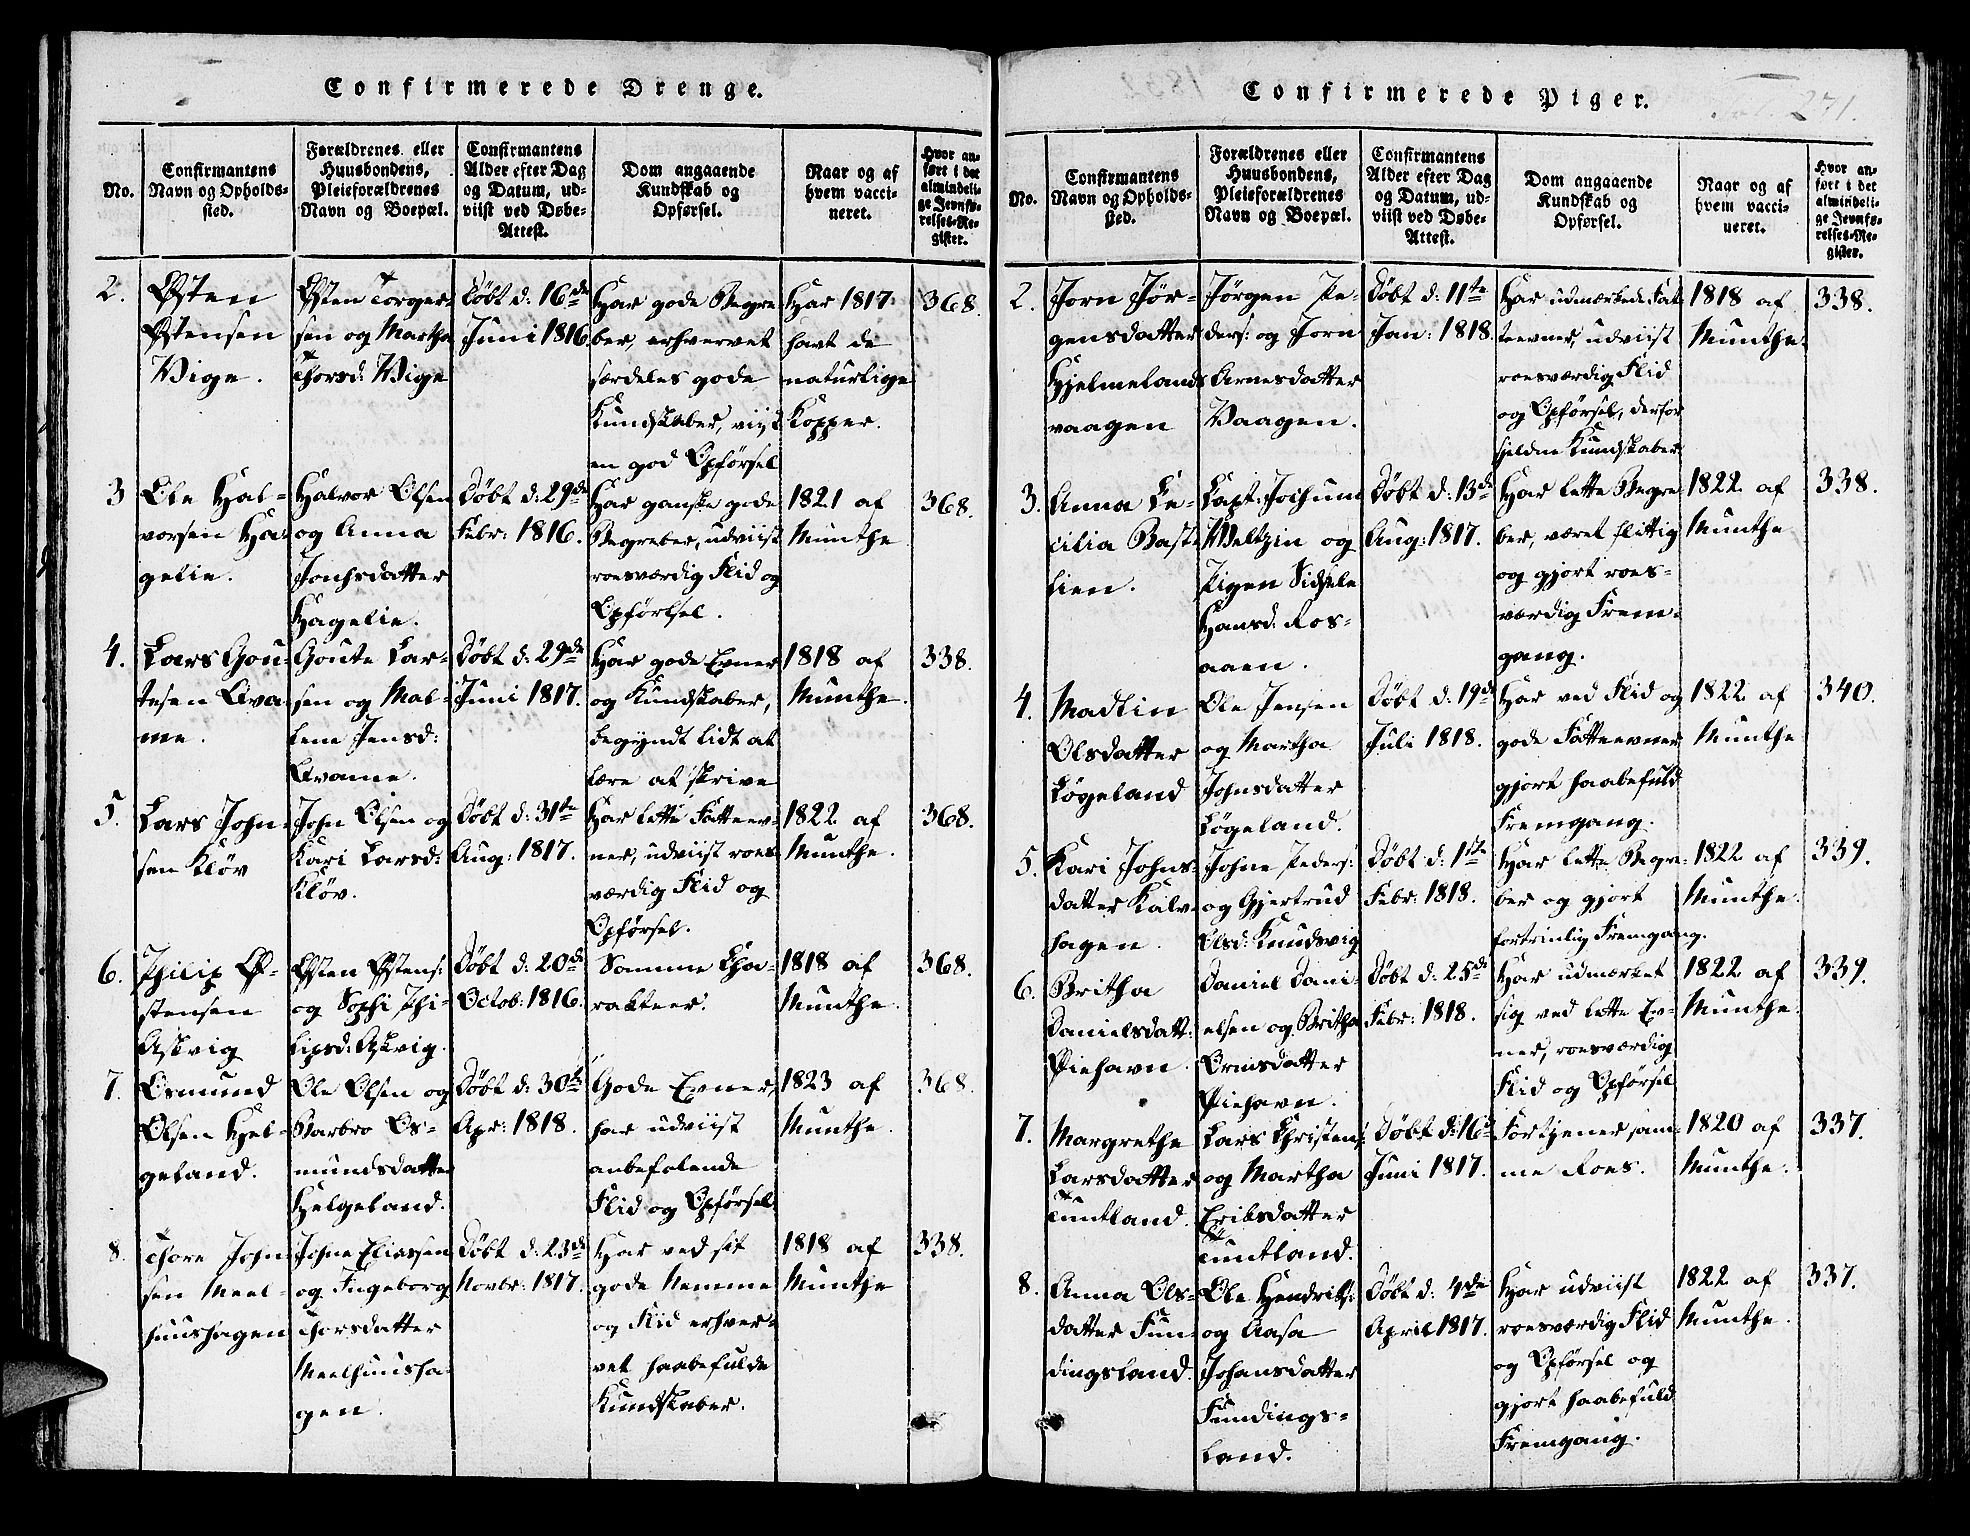 Confirmerede Drenge.
No.
Confirmantens
Navn og Opholds-
sted.
Forældrenes eller
Huusbondens,
Pleieforældrenes
Navn og Boepæl.
Confirmantens
Alder efter Dag
og Datum, ud-
viist ved Døbe-
Attest.
Dom angaaende
Kundskab og
Opførsel.
Naar og af
hvem vacci-
neret.
Hvor an-
ført i det
almindeli-
ge Jevnfø-
relses-Re-
gister.
2.
Østen
Østensen
Vige.
Østen Torger-
sen og Martha
Thorsd: Vige
Döbt d: 16de
Juni 1816.
Har gode Begre-
ber, erhvervet
særdeles gode
Kundskaber, viist
en god Opførsel
Har 1817
havt de
naturlige
Kopper.
368.
3
Ole Hal-
vorsen Ha-
gelie.
Halvor Olsen
og Anna
Jonsdatter
Hagelie.
Döbt d: 29de
Febr: 1816.
Har ganske gode
Begreber, udviist
roesværdig Flid og
Opførsel.
1821 af
Munthe
368.
4.
Lars Gou-
tesen Qva-
me.
Goute Lar-
sen og Mal-
lene Jensd:
Qvame.
Döbt d: 29de
Juni 1817.
Har gode Evner
og Kundskaber,
begyndt lidt at
lære at skrive
1818 af
Munthe.
338.
5.
Lars John-
sen Kløv
John Olsen og
Kari Larsd:
Kløv.
Döbt d: 31te
Aug: 1817.
Har lette Fatteev-
ner, udviist roes-
værdig Flid og
Opførsel.
1822 af
Munthe.
368.
6.
Philip Ø-
stensen
Askvig
Østen Østens:
og Sophi Phi-
lipsd: Askvig.
Döbt d: 20de
Octob: 1816.
Samme Cha-
rakteer.
1818 af
Munthe.
368.
7.
Osmund
Olsen Hel-
geland.
Ole Olsen og
Barbro Os-
mundsdatter
Helgeland.
Döbt d: 30te
Apr: 1818.
Gode Evner,
har udviist
anbefalende
Flid og Opførsel
1823 af
Munthe.
368.
8.
Thore John-
sen Meel-
huushagen
Johne Eliassen
og Ingeborg
Thorsdatter
Meelhuusha-
gen.
Döbt d: 23de
Novbr: 1817.
Har ved sit
gode Nemme
og Flid erhver-
vet haabefulde
Kundskaber.
1818 af
Munthe
338.
Confirmerede Piger.
Fol. 271.
No.
Confirmantens
Navn og Opholds-
sted.
Forældrenes eller
Huusbondens,
Pleieforældrenes
Navn og Boepæl.
Confirmantens
Alder efter Dag
og Datum, ud-
viist ved Døbe-
Attest.
Dom angaaende
Kundskab og
Opførsel.
Naar og af
hvem vacci-
neret.
Hvor an-
ført i det
almindeli-
ge Jevnfø-
relses-Re-
gister.
2.
Jorn Jör-
gensdatter
Hjelmelands
vaagen
Jörgen Pe-
ders: og Jorn
Arnesdatter
Vaagen.
Döbt d: 11te
Jan: 1818.
Har udmærkede Fat-
teevner, udviist
roesværdig Flid
og Opførsel, derfor
sjeldne Kundskaber
1818 af
Munthe.
338.
3.
Anna Ce-
cilia Bast-
lien.
Capt: Jochum
Weltzin og
Pigen Sidsele
Hansd: Ros-
aaen.
Döbt d: 13de
Aug: 1817.
Har lette Begre-
ber, været flittig
og gjort roes-
værdig Frem-
gang.
1822 af
Munthe
338.
4.
Madlin
Olsdatter
Løgeland
Ole Jensen
og Martha
Johnsdatter
Løgeland.
Döbt d: 19de
Juli 1818.
Har ved Flid og
gode Fatteevner
gjort haabefuld
Fremgang.
1822 af
Munthe
340.
5.
Kari Johns-
datter Kalv-
hagen.
Johne Peders:
og Gjertrud
Olsd: Knudsvig
Döbt d: 1ste
Febr: 1818.
Har lette Begre-
ber og gjort
fortrinlig Fremgang.
1822 af
Munthe.
339.
6.
Britha
Danielsdatt:
Piehavn.
Daniel Dani-
elsen og Britha
Ornisdatter
Piehavn.
Döbt d: 25de
Febr: 1818.
Har udmærket
sig ved lette Ev-
ner, roesværdig
Flid og Opførsel
1822 af
Munthe.
339.
7.
Margrethe
Larsdatter
Tuntland.
Lars Christens:
og Martha
Eriksdatter
Tuntland.
Döbt d: 16de
Juni 1817.
Fortjener sam-
me Roes.
1820 af
Munthe.
337.
8.
Anna Ols-
datter Fun-
dingsland.
Ole Hendriks:
og Aasa
Johansdatter
Fundings-
land.
Döbt d: 4de
April 1817.
Har udviist
roesværdig Flid
og Opførsel og
gjort haabefuld
Fremgang.
1822 af
Munthe.
337.